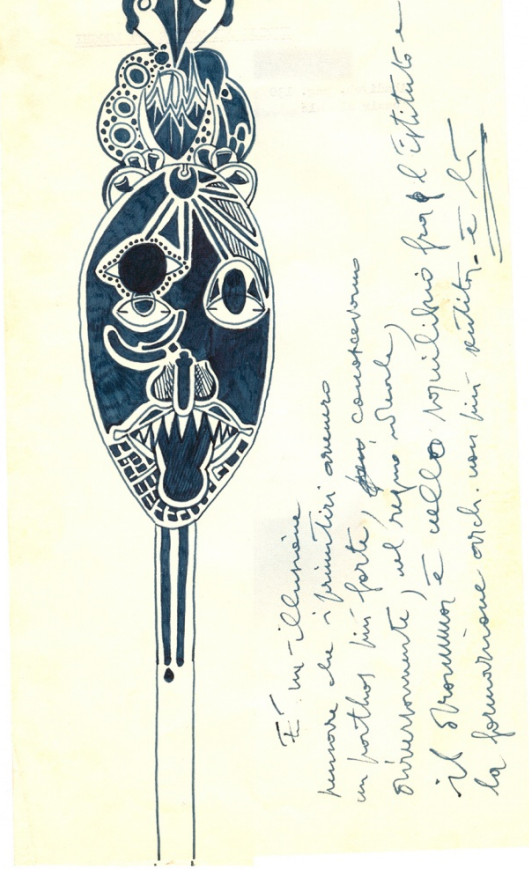 E' un'illusione
pensare che i primitivi avessero
un pathos più forte, conoscevano
diversamente, nel segno
il dramma è nello squilibrio fra l'istituto e
la formazione arch. non più sentita. è lì